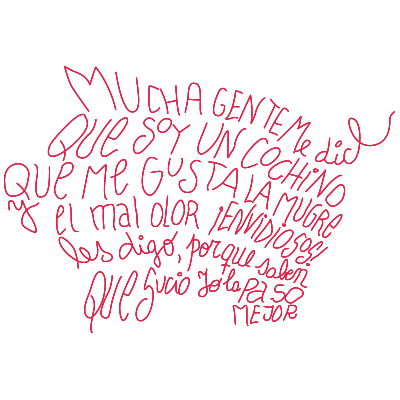 MUCHA GENTE Me dice
QUE SOY UN COCHINO
QUE Me GUSTA LA MUGRE
y el mal OLOR ¡ENVIDIOSOS!
les digo, porque saben
QUE Sucio Yo la PASO
MEJOR